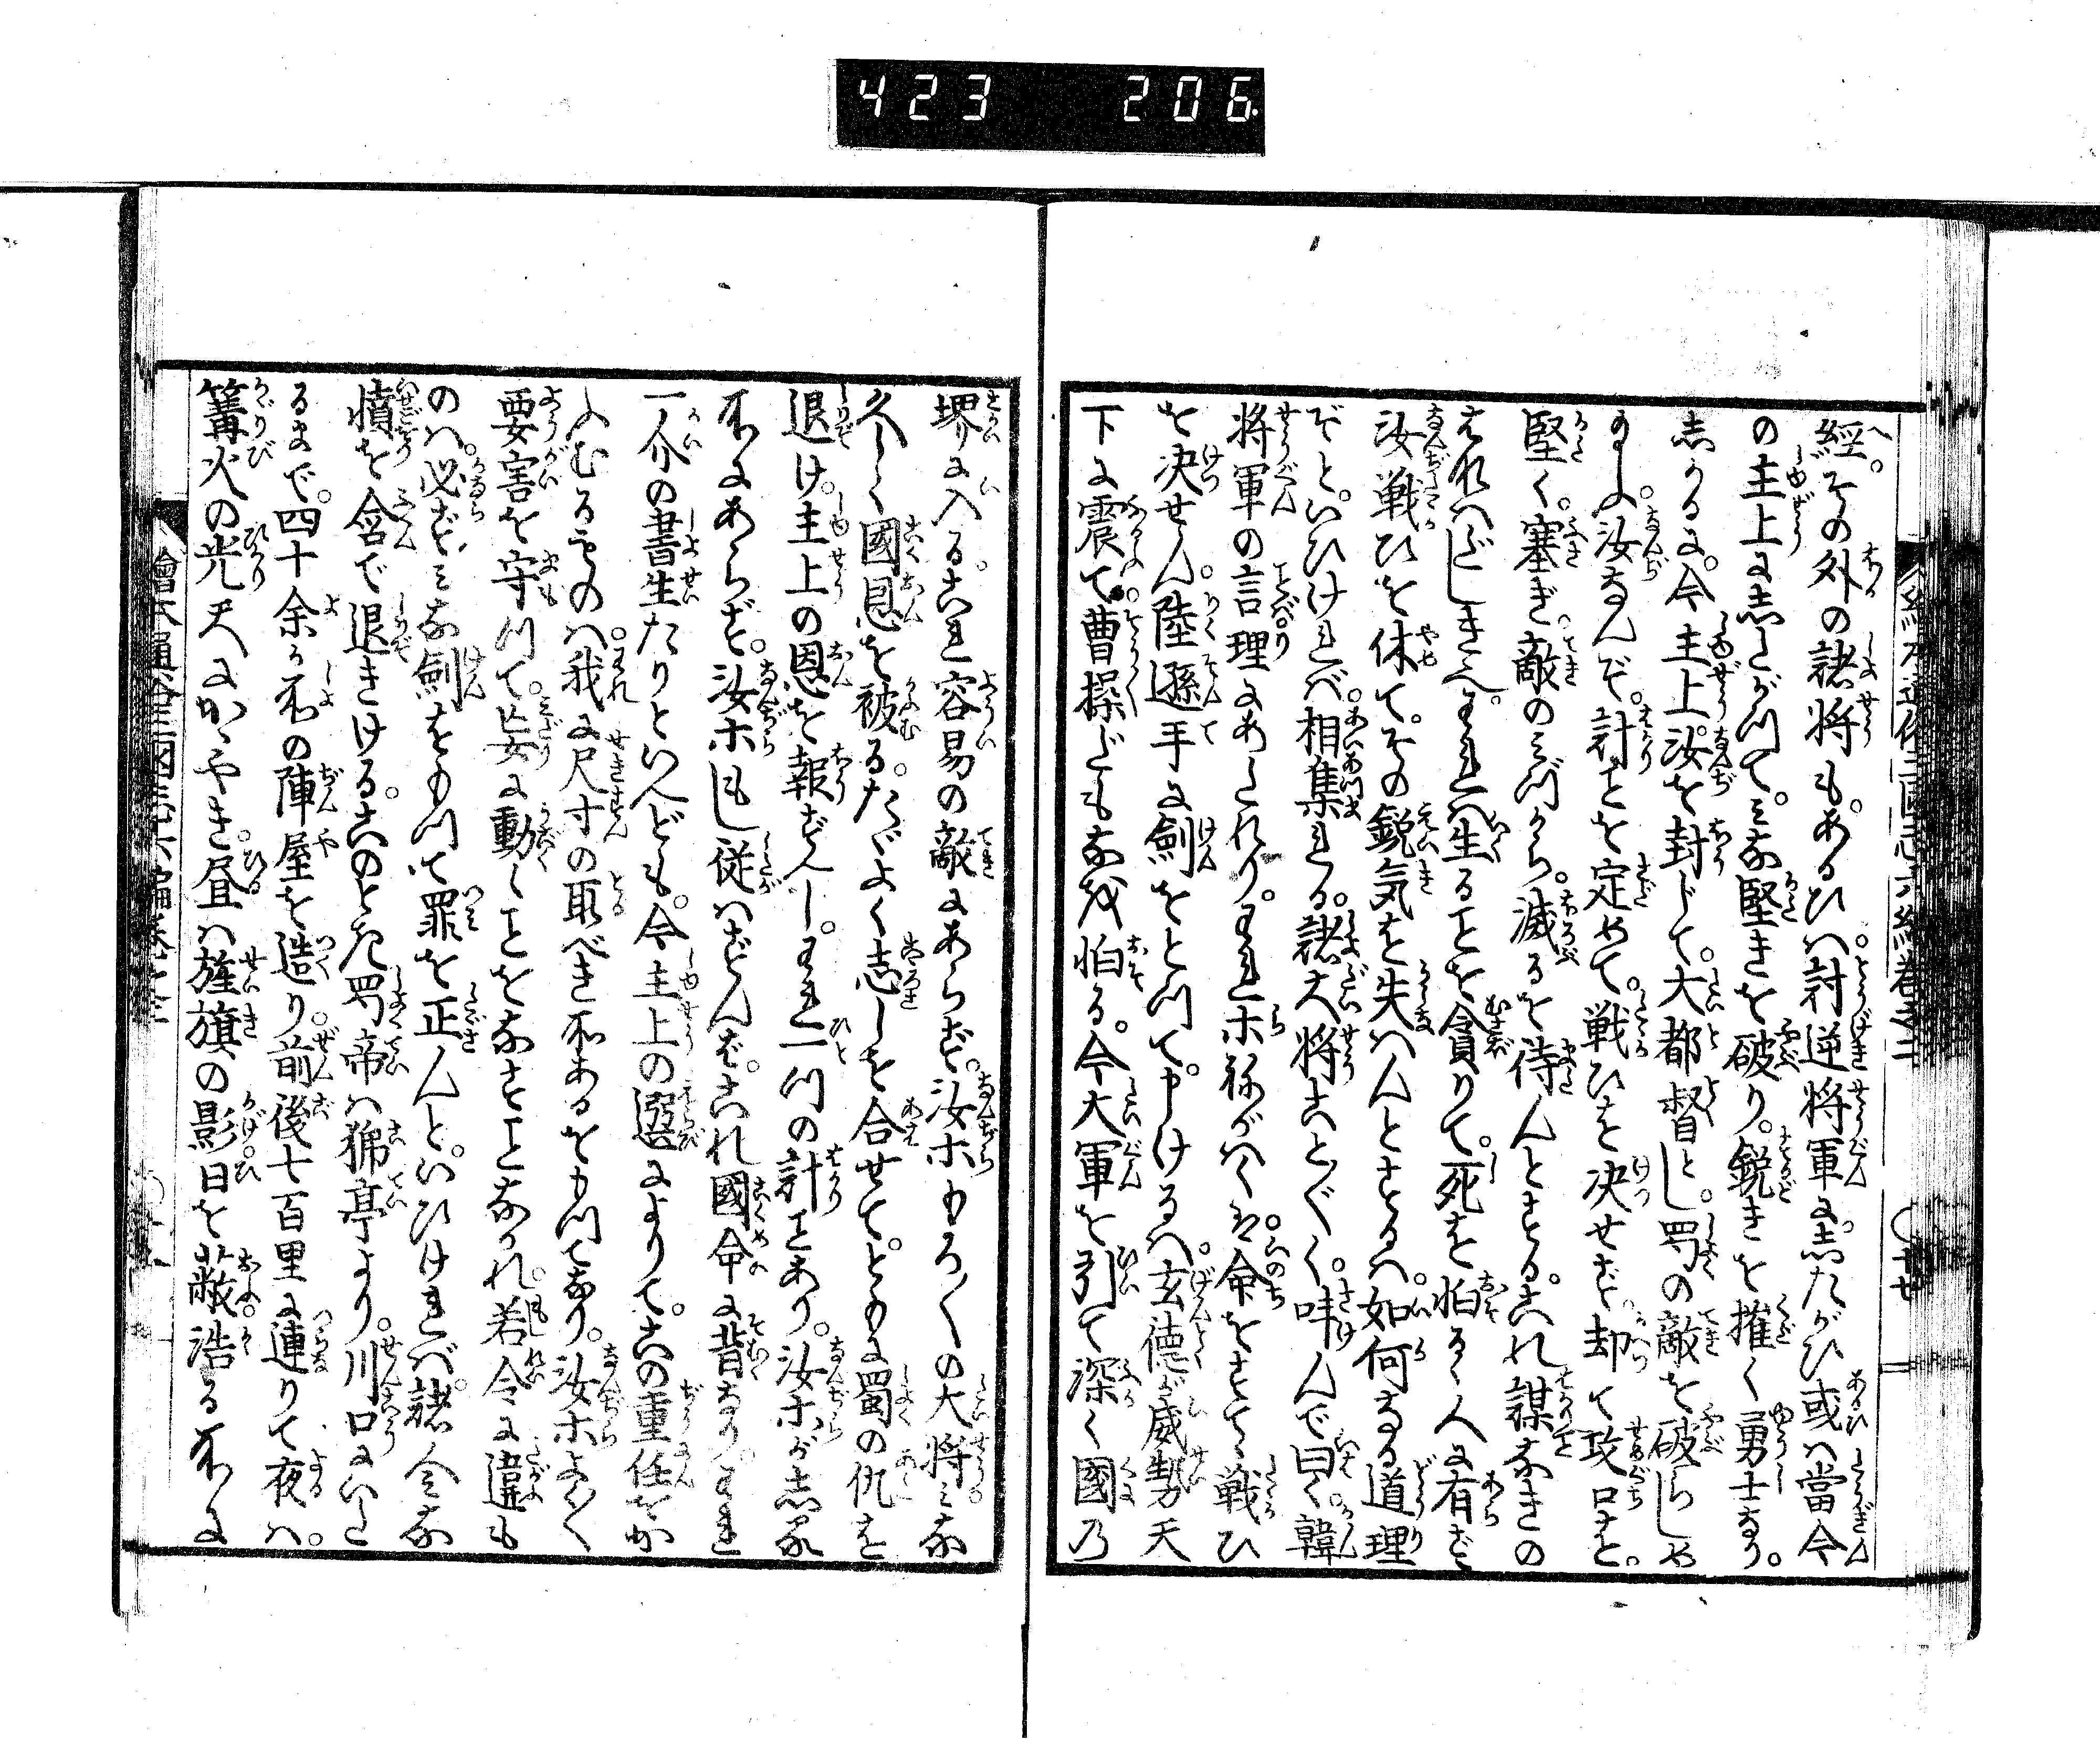 423 206
經。その外の諸將も。あるひハ討逆將軍にしたがひ或ハ當今
の主上にしたがつて。みな堅きを破り。鋭きを摧く勇士なり。
しかるに。今主上汝を封じて。大都督とし。蜀の敵を破らしめ
汝なんぞ。計ことを定めて。戦ひを决せず却て攻口を。
堅く。塞ぎ敵のみづから。滅るを待んとする。これ謀なきの
汝戦ひを休て。その鋭気を失ハんとするハ。如何なる道理
ぞと。いひけれバ。相集れる。諸大將ことごとく。呌んで曰く。韓
將軍の言理にあたれり。われホ祢がハくハ。命をすてゝ戦ひ
を决せん。陸遜手に劍をとつて。申けるハ。玄德が威勢天
下に震て。曹操だもなほ怕る。今大軍を引て深く國乃
堺に入る。これ容易の敵にあらず。汝ホもろ〳〵の大將みな
久しく國恩を被る。たゞよく志しを合せて。ともに蜀の仇を
退け。主上の恩を報ずべし。われ一つの計ことあり。汝ホが志る
所にあらず。汝ホもし従ハずんば。これ國命に背なり。われ
一介の書生たりといへども。今主上の選によりて。この重任をか
ふむるものハ。我に尺寸の取べき所あるをもつてなり。汝ホよく〳〵
要害を守つて。妄に動くことをなすことなかれ。若令に違も
のハ。必ずみな劍をもつて罪を正んと。いひけれバ。諸人みな
憤を含で退きける。このとき蜀帝ハ猇亭より。川口にいた
るまで。四十余ヶ所の陣屋を造り。前後七百里に連りて夜ハ。
篝火の光天にかゝやき。昼ハ旌旗の影日を蔽。浩る所に